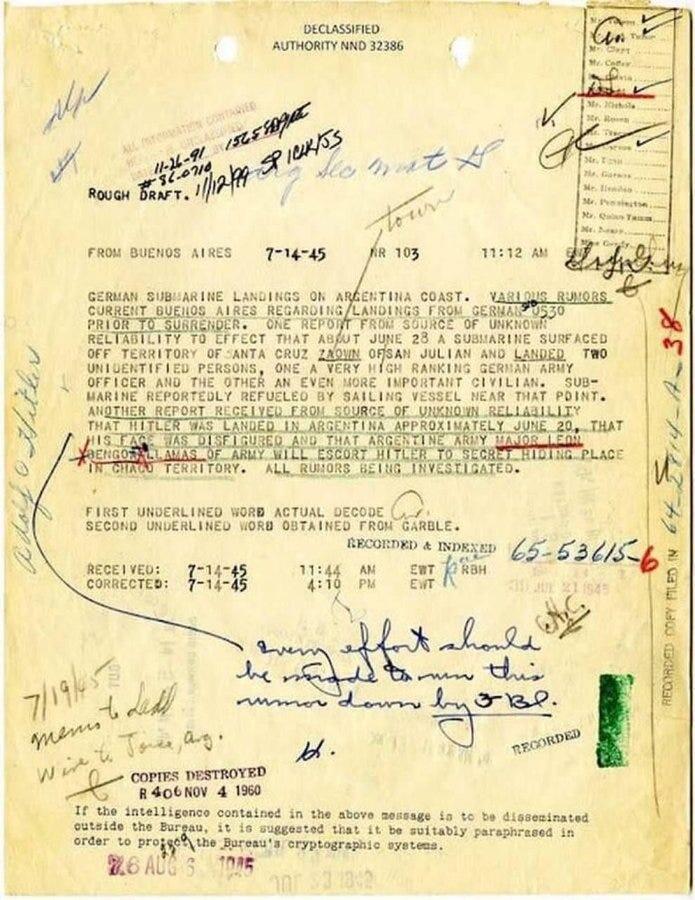 DECLASSIFIED
AUTHORITY NND 32386
ALL INFORMATION CONTAINED
11-26-91
#86-0710
ROUGH DRAFT. 11/12/99
town
FROM BUENOS AIRES 7-14-45 NR 103 11:12 AM
GERMAN SUBMARINE LANDINGS ON ARGENTINA COAST. VARIOUS RUMORS
CURRENT BUENOS AIRES REGARDING LANDINGS FROM GERMAN 0530
PRIOR TO SURRENDER. ONE REPORT FROM SOURCE OF UNKNOWN
RELIABILITY TO EFFECT THAT ABOUT JUNE 28 A SUBMARINE SURFACED
OFF TERRITORY OF SANTA CRUZ ZAOWN OFSAN JULIAN AND LANDED TWO
UNIDENTIFIED PERSONS, ONE A VERY HIGH RANKING GERMAN ARMY
OFFICER AND THE OTHER AN EVEN MORE IMPORTANT CIVILIAN. SUB-
MARINE REPORTEDLY REFUELED BY SAILING VESSEL NEAR THAT POINT.
ANOTHER REPORT RECEIVED FROM SOURCE OF UNKNOWN RELIABILITY
THAT HITLER WAS LANDED IN ARGENTINA APPROXIMATELY JUNE 20, THAT
HIS FACE WAS DISFIGURED AND THAT ARGENTINE ARMY MAJOR LEON
BENGOA LLAMAS OF ARMY WILL ESCORT HITLER TO SECRET HIDING PLACE
IN CHACO TERRITORY. ALL RUMORS BEING INVESTIGATED.
FIRST UNDERLINED WORD ACTUAL DECODE
SECOND UNDERLINED WORD OBTAINED FROM GARBLE.
RECORDED & INDEXED 65-53615-6
RECEIVED: 7-14-45 11:44 AM EWT RBH
CORRECTED: 7-14-45 4:10 PM EWT
every effort should
be made to run this
rumor down by FBI.
H.
7/19/45
Memo to Ladd
Wire to
RECORDED
COPIES DESTROYED
R 406 NOV 4 1960
If the intelligence contained in the above message is to be disseminated
outside the Bureau, it is suggested that it be suitably paraphrased in
order to protect the Bureau's cryptographic systems.
AUG 6 1945
Adolf Hitler
RECORDED COPY FILED IN 64-2814-A-38
Mr. Coffey
Mr. Nichols
Mr. Rosen
Mr. Tracy
Mr. Egan
Mr. Hendon
Mr. Pennington
Mr. Quinn Tamm
Mr. Nease
Miss Gandy